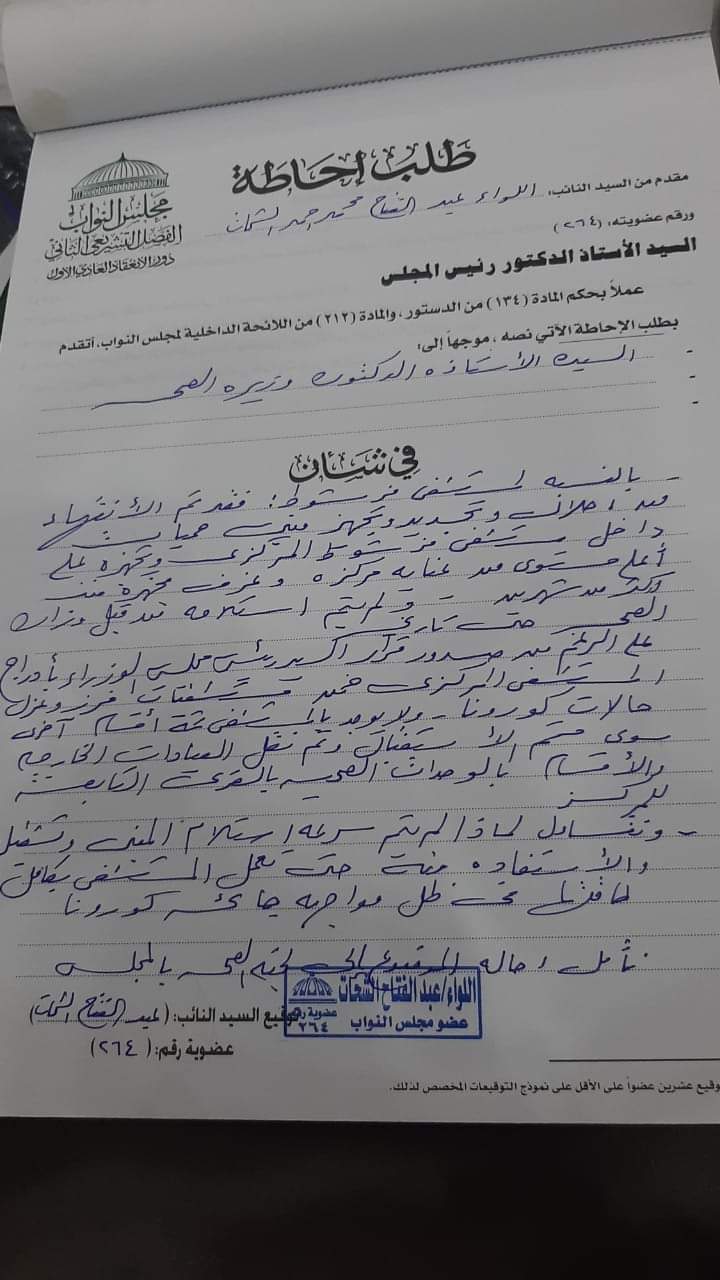 طلب إحاطة
مجلس النواب
الفصل التشريعي الثاني
دور الانعقاد العادي الأول
مقدم من السيد النائب، اللواء عبد الفتاح محمد احمد الشحات
ورقم عضويته، (٢٦٤)
السيد الأستاذ الدكتور رئيس المجلس
عملاً بحكم المادة (١٣٤) من الدستور، والمادة (٢١٢) من اللائحة الداخلية لمجلس النواب، أتقدم
بطلب الإحاطة الآتي نصه، موجهاً إلى:
- السيده الأستاذه الدكتوره وزيره الصحه
-
-
في شأن
- بالنسبه لمستشفى فرشوط: فقد تم الأنتهاء
من احلال وتجديد وتجهيز مبنى حميات
داخل مستشفى فرشوط المركزى وتجهزه على
أعلى مستوى من عنايه مركزه وغرف مجهزة منذ
اكثر من شهرين - ولم يتم استلامه من قبل وزارة
الصحه حتى تاريخه
على الرغم من صدور قرار السيد رئيس مجلس الوزراء بأدراج
المستشفى المركزى ضمن مستشفيات فرز وعزل
حالات كورونا - ولا يوجد بالمستشفى ثمة أقسام آخرى
سوى قسم الاستقبال وتم نقل العيادات الخارجيه
والأقسام بالوحدات الصحيه بالقرى التابعة
للمركز
- ونتسائل لماذا لم يتم سرعه إستلام المبنى وتشغيله
والأستفاده منة حتى تعمل المستشفى بكامل
طاقتها فى ظل مواجهه جائحه كورونا
نأمل احاله الموضوع إلى لجنه الصحه بالمجلس
توقيع السيد النائب: (عبد الفتاح الشحات)
عضوية رقم: (٢٦٤)
اللواء/عبد الفتاح الشحات
عضو مجلس النواب
عضوية رقم
٢٦٤
توقيع عشرين عضواً على الأقل على نموذج التوقيعات المخصص لذلك.